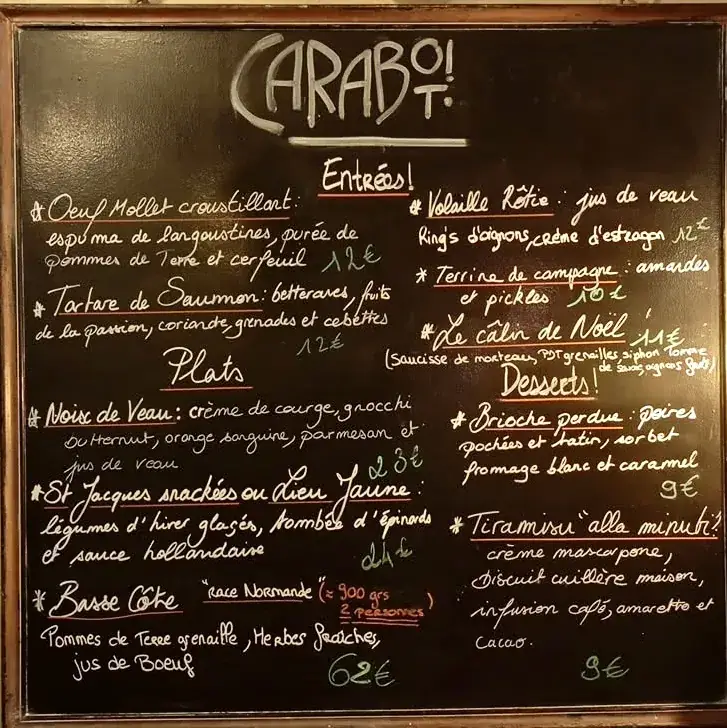 CARABOT!
Entrées!
* Oeuf Mollet croustillant:
espuma de langoustines, purée de
pommes de Terre et cerfeuil 12€
* Tartare de Saumon: betteraves, fruits
de la passion, coriande, grenades et cebettes
12€
* Volaille Rôtie : jus de veau
Ring's d'oignons, crème d'estragon 12€
* Terrine de campagne : amandes
et pickles 10€
* Le câlin de Noël ! 11€
(Saucisse de morteau, PDT grenailles, siphon Tomme
de savoie, oignons frits)
Plats
* Noix de Veau : crème de courge, gnocchi
butternut, orange sanguine, parmesan et
jus de veau 23€
* St Jacques snackées ou Lieu Jaune :
légumes d'hiver glacés, tombée d'épinards
et sauce hollandaise 24€
* Basse Côte "race Normande" (≈ 900 grs
2 personnes)
Pommes de Terre grenaille, Herbes fraîches,
jus de Boeuf 62€
Desserts!
* Brioche perdue : poires
pochées et tatin, sorbet
fromage blanc et caramel
9€
* Tiramisu "alla minute" :
crème mascarpone,
biscuit cuillère maison,
infusion café, amaretto et
cacao. 9€